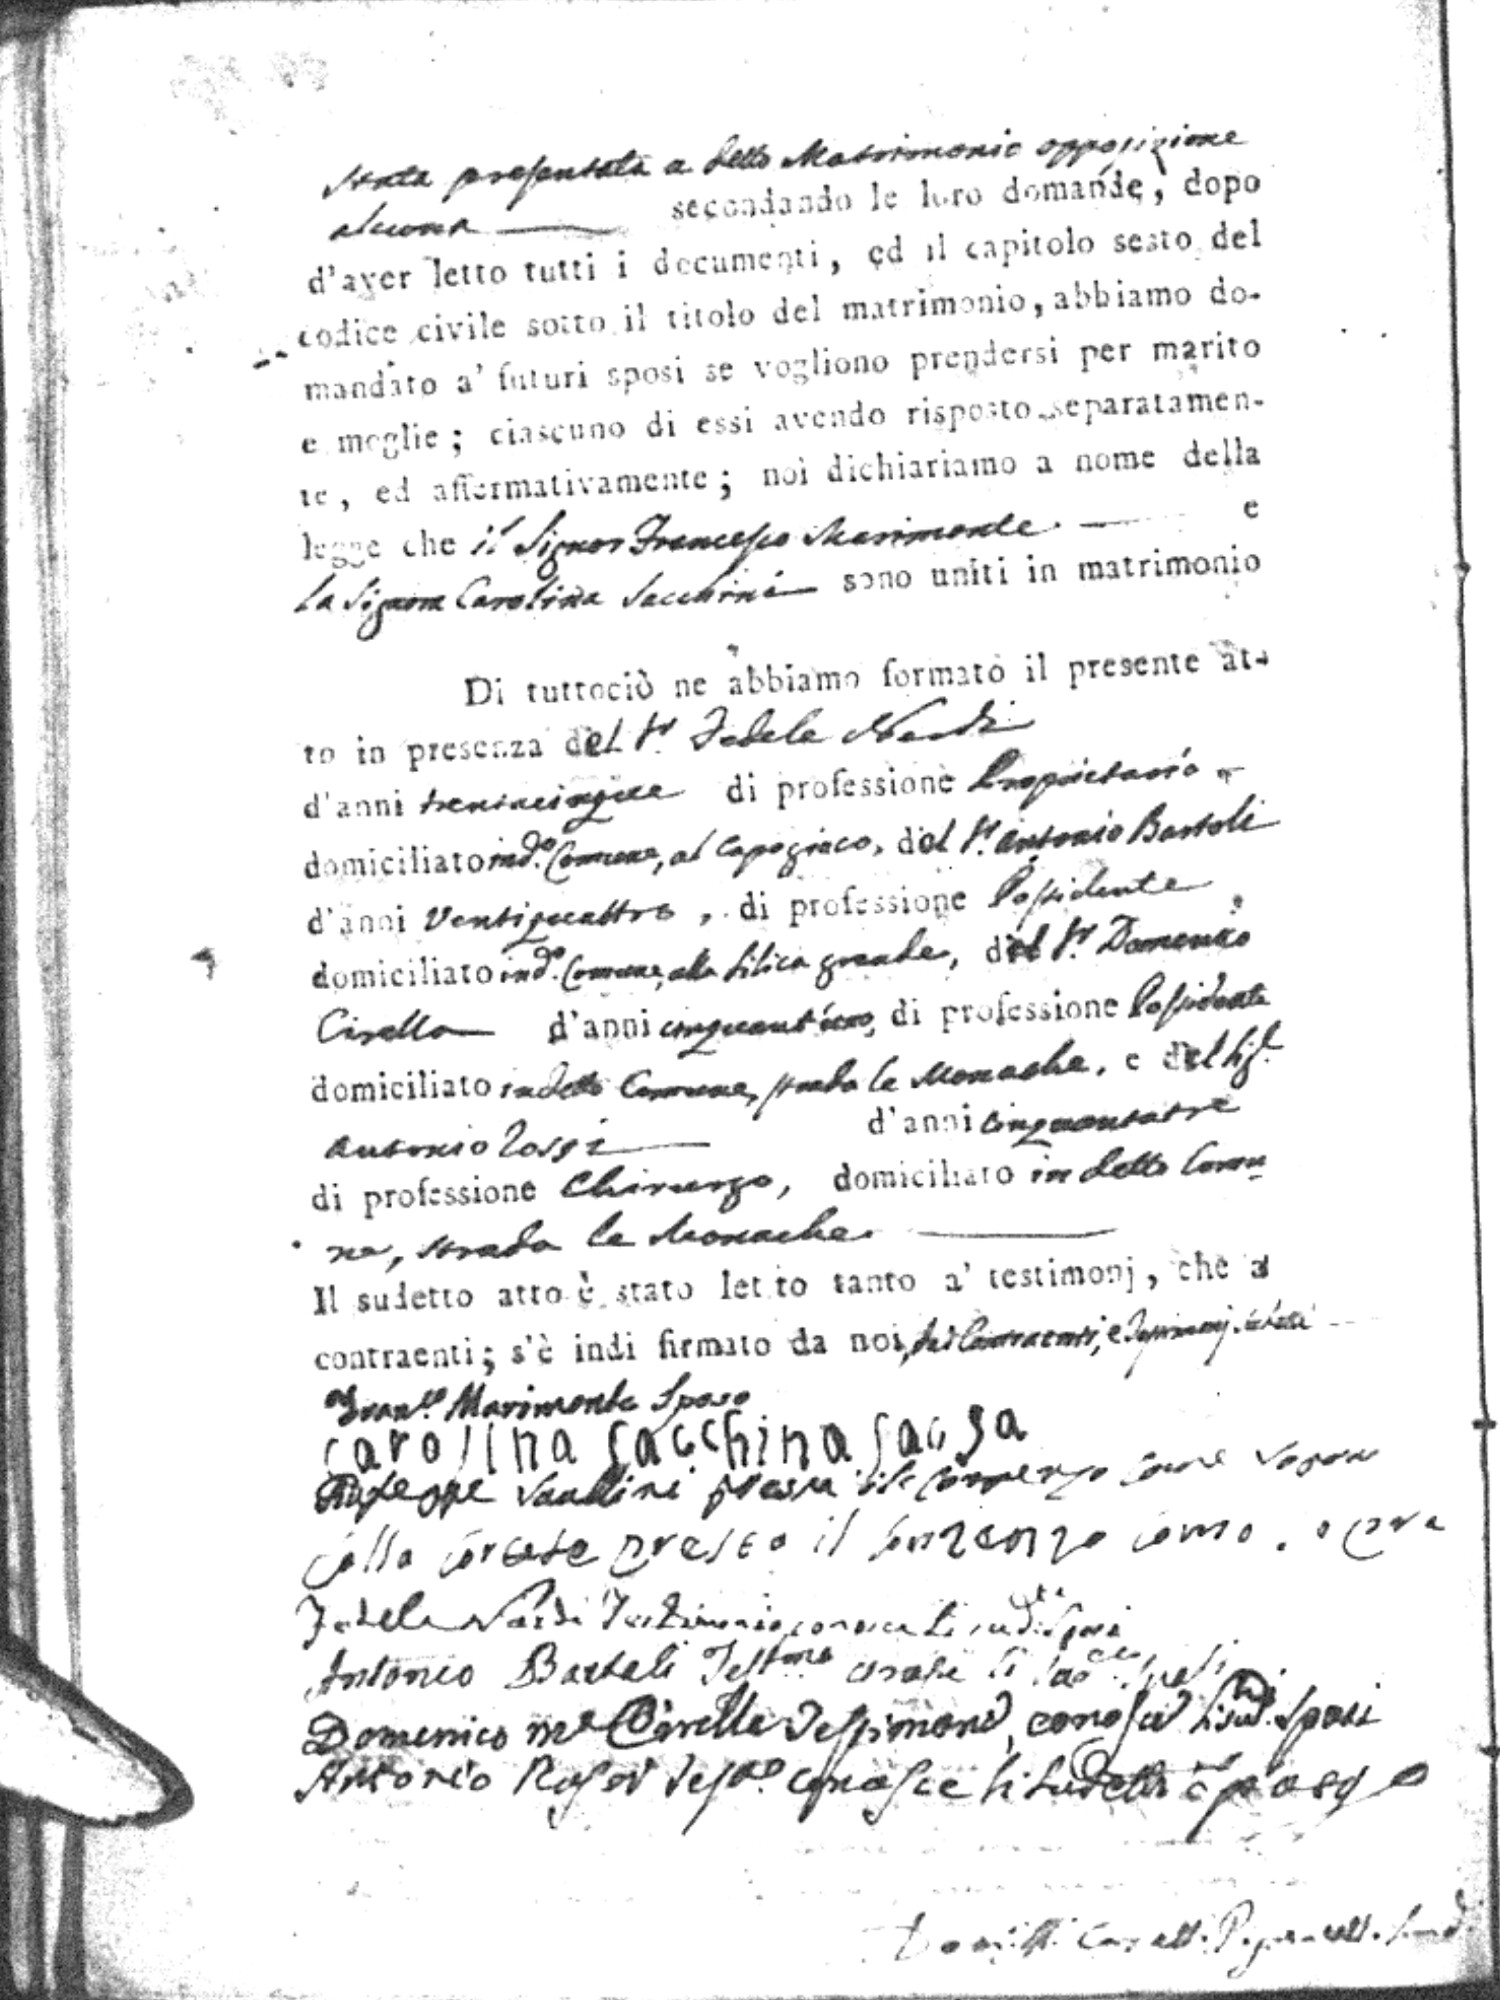 stata presentata a detto Matrimonio opposizione
alcuna secondando le loro domande, dopo
d'aver letto tutti i documenti, ed il capitolo sesto del
codice civile sotto il titolo del matrimonio, abbiamo do-
mandato a' futuri sposi se vogliono prendersi per marito
e moglie; ciascuno di essi avendo risposto separatamen-
te, ed affermativamente; noi dichiariamo a nome della
legge che il Signor Francesco Marimonte e
la Signora Carolina Sacchini sono uniti in matrimonio
Di tuttociò ne abbiamo formato il presente at-
to in presenza del Sr. Fedele Nardi
d'anni trentacinque di professione Proprietario
domiciliato in do. Comune, al Capogiaco, del Sr. Antonio Bartoli
d'anni Ventiquattro, di professione Possidente
domiciliato in do. Comune, alla Silica grande, del Sr. Domenico
Cirella d'anni di professione Possidente
domiciliato in detto Comune, strada le Monache, e del Sigr.
Antonio Rossi d'anni cinquantatre
di professione Chirurgo, domiciliato in detto Comu
ne, strada le Monache.
Il sudetto atto è stato letto tanto a' testimonj, che a
contraenti; s'è indi firmato da noi, dai Contraenti, e Testimonj
Franco. Marimonte Sposo
carolina sacchina
Giuseppe
presto il
Fedele Nardi Testimonio conosce li sudti. Sposi
Antonio Bartoli Testimo conosce li
Domenico Ma Cirella Testimonio, conosce li sud. Sposi
Antonio Rossi Testo. conosce li sudetti sposi